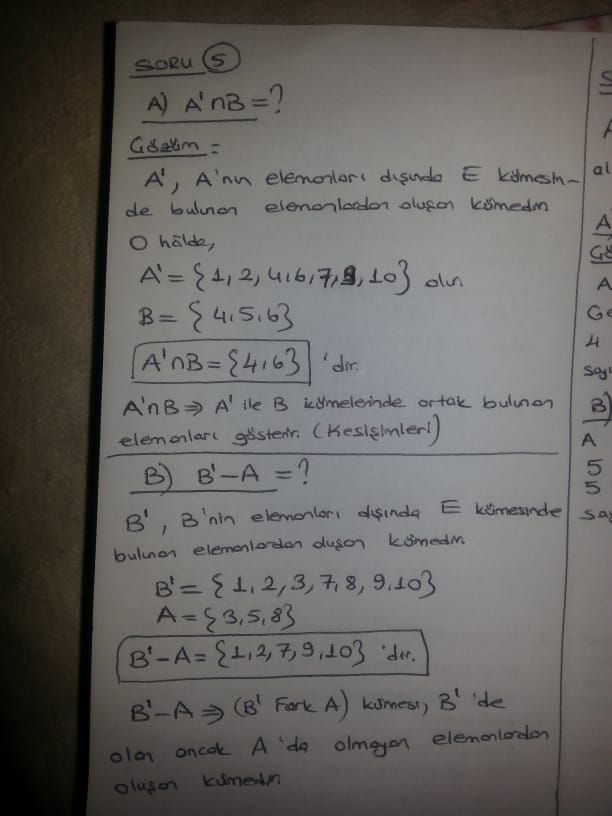 SORU 5
A) A'∩B=?
Çözüm =
A', A'nın elemanları dışında E kümesin-
de bulunan elemanlardan oluşan kümedir.
O hâlde,
A'= {1, 2, 4, 6, 7, 9, 10} olur.
B= {4, 5, 6}
A'∩B= {4, 6} 'dır.
A'∩B ⇒ A' ile B kümelerinde ortak bulunan
elemanları gösterir. (Kesişimleri)
B) B'-A =?
B', B'nin elemanları dışında E kümesinde
bulunan elemanlardan oluşan kümedir.
B'= {1, 2, 3, 7, 8, 9, 10}
A= {3, 5, 8}
B'-A= {1, 2, 7, 9, 10} 'dır.
B'-A ⇒ (B' Fark A) kümesi, B' 'de
olan ancak A 'da olmayan elemanlardan
oluşan kümedir.
S
A
al
A
Çö
A
Ge
4
say
B)
A
5
5
sa